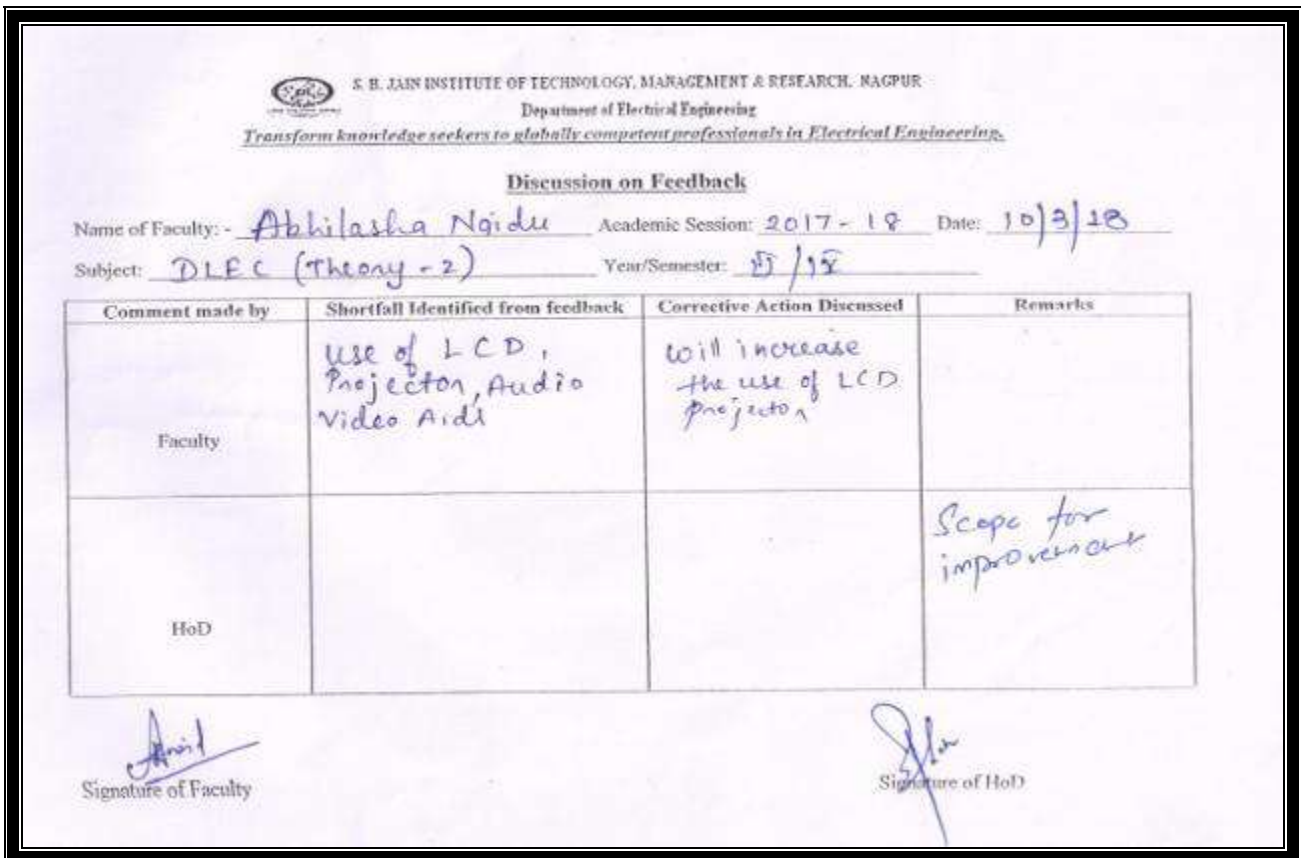 S. B. JAIN INSTITUTE OF TECHNOLOGY, MANAGEMENT & RESEARCH, NAGPUR
Department of Electrical Engineering
Transform knowledge seekers to globally competent professionals in Electrical Engineering.
Discussion on Feedback
Name of Faculty: - Abhilasha Naidu Academic Session: 2017-18 Date: 10/3/18
Subject: DLEC (Theory - 2) Year/Semester:
Comment made by Shortfall Identified from feedback Corrective Action Discussed Remarks
Faculty
use of LCD,
Projector, Audio
Video Aids
will increase
the use of LCD
projector
HoD
Scope for
improvement
Signature of Faculty Signature of HoD